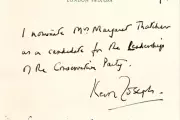 I nominate Mrs Margaret Thatcher
as a candidate for the Leadership
of the Conservative Party.
Keith Joseph.